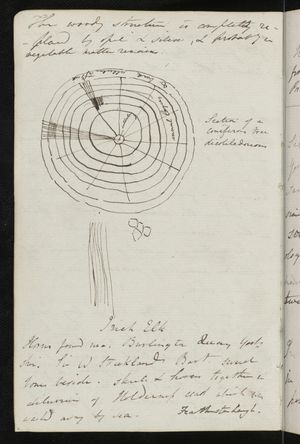 The woody structure is completely re-
-placed by opal & silex, & probably no
vegetable matter remains.
Section of a
coniferous tree
dicotyledonous
Irish Elk
Horns found near Burlington Quay York-
shire. Sir W Strickland Bart saved
bones beside. Skull & horns together in
of Holderness coast which
away by sea. Featherstonhaugh.